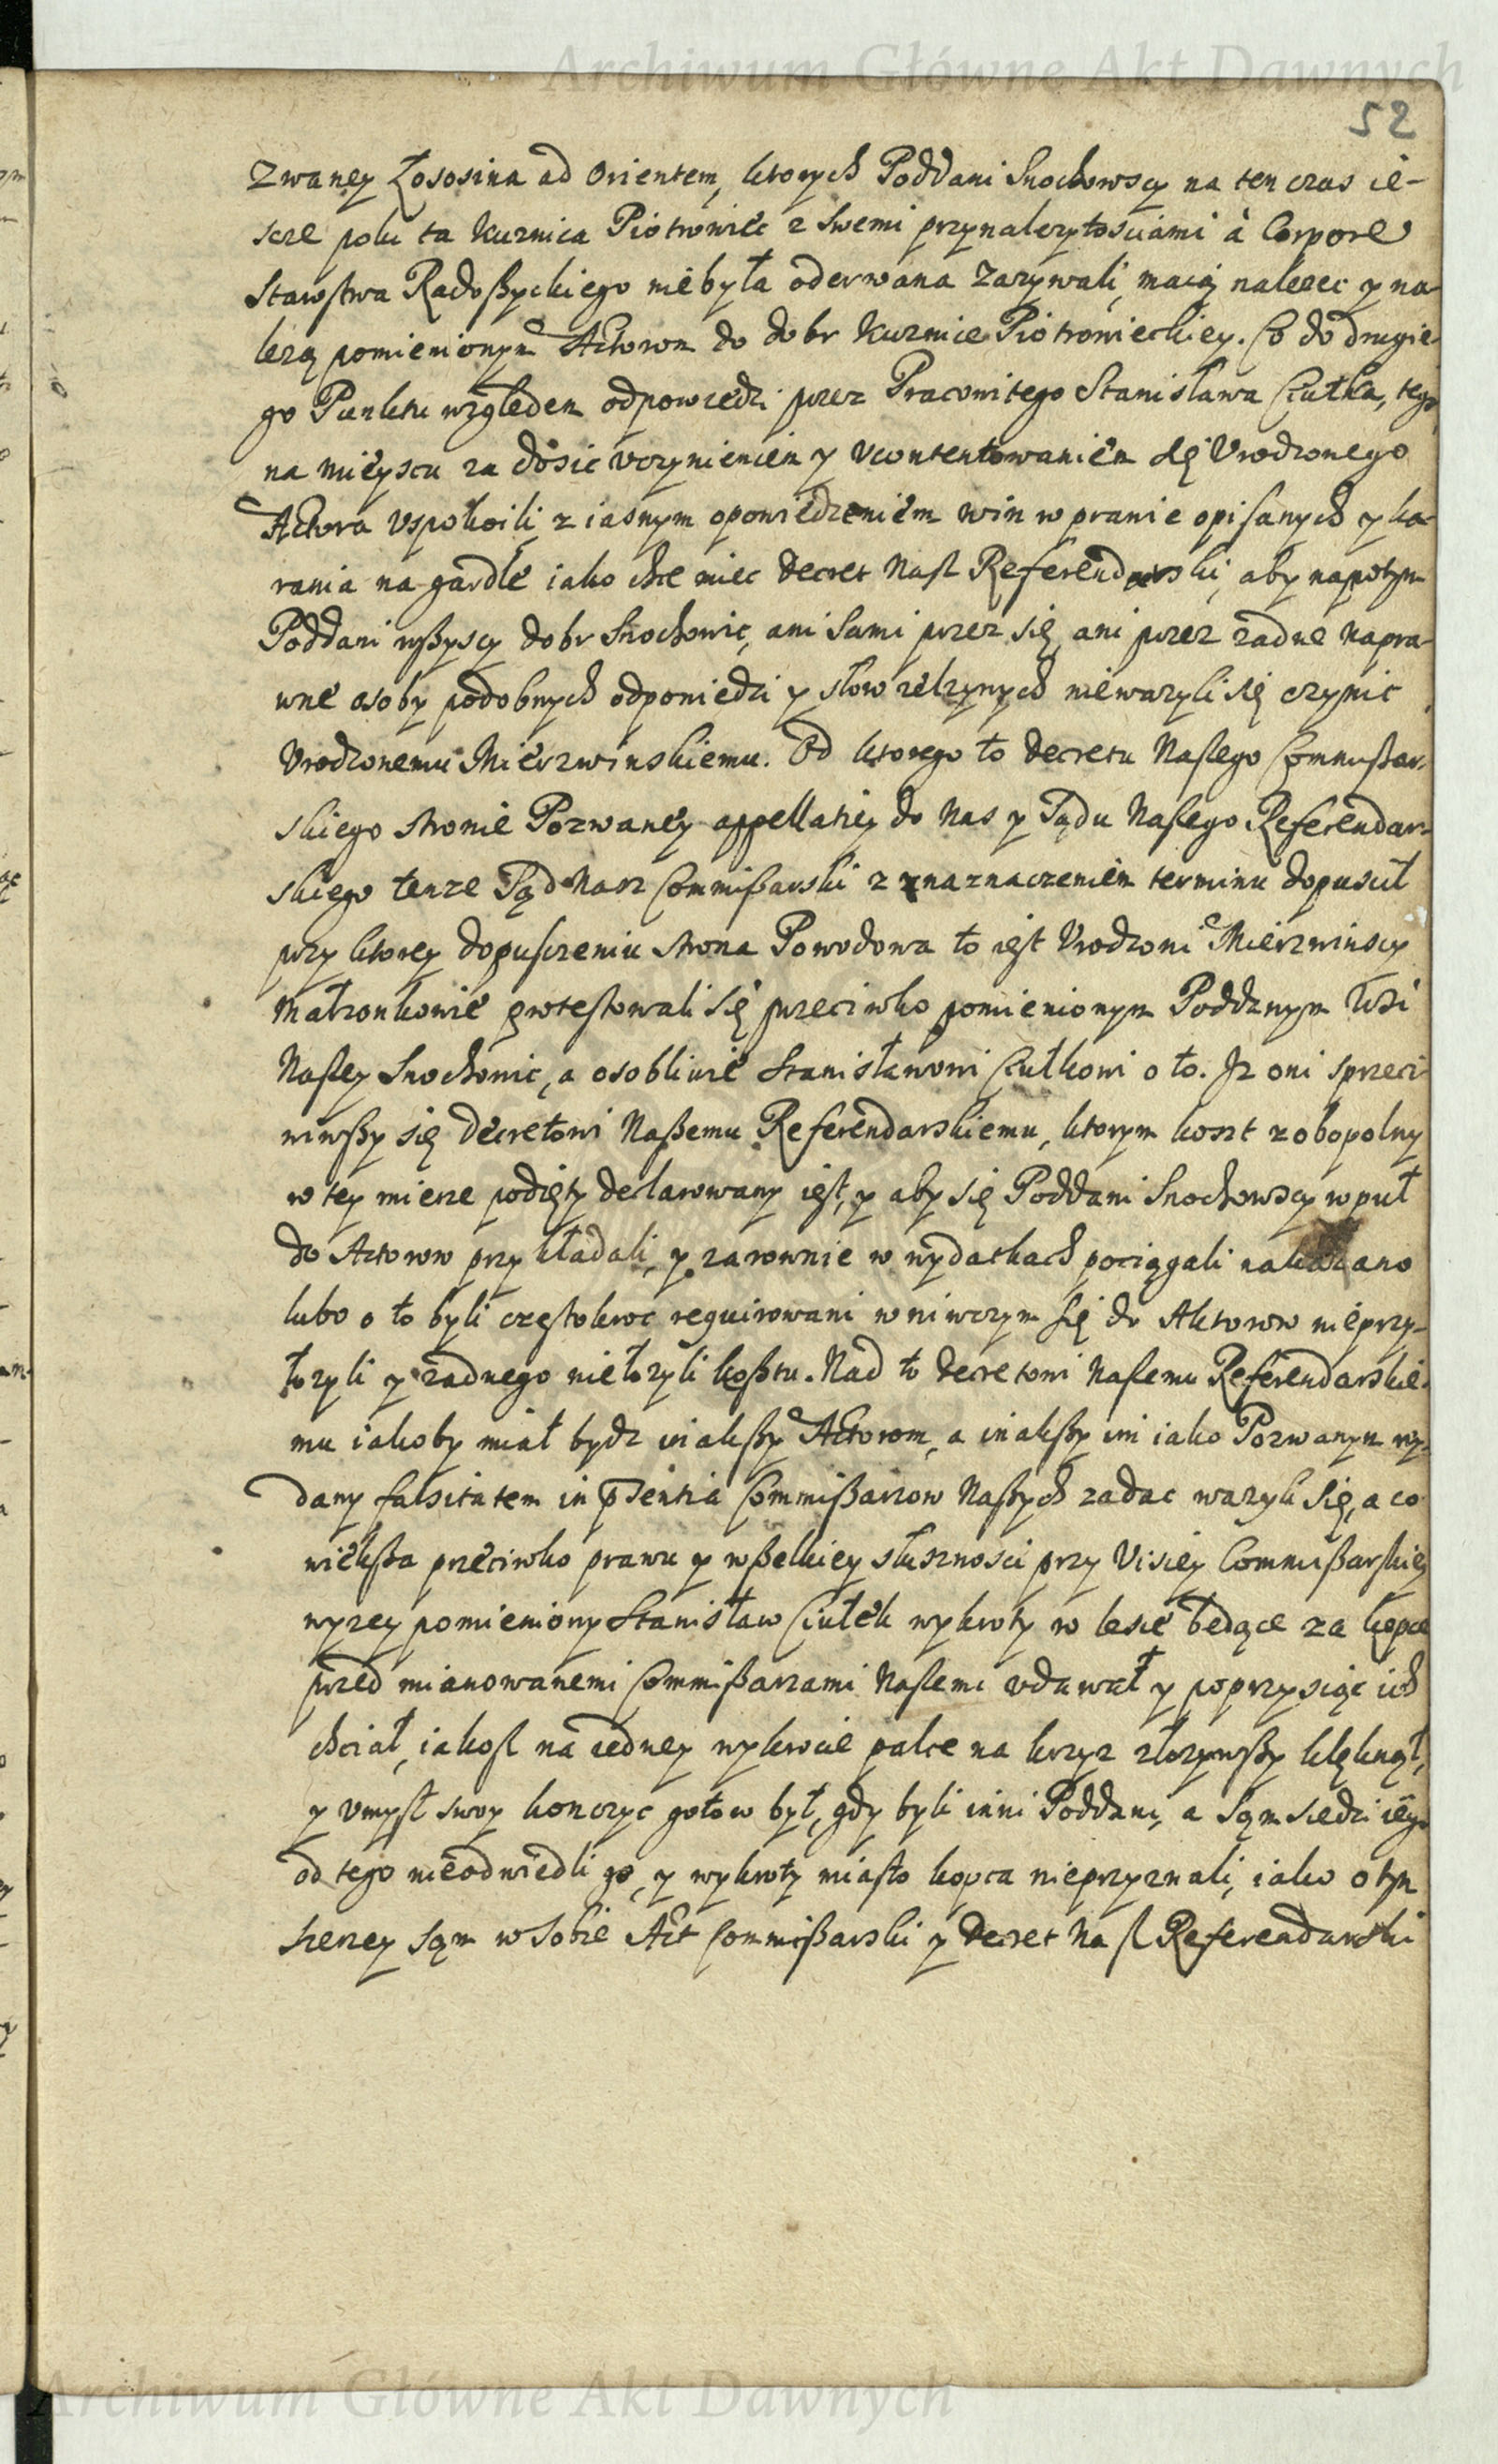 Archiwum Główne Akt Dawnych
52
zwaney Łososina ad Orientem, ktorych Poddani Snochowscy na ten czas ie-
scze poki ta kuznica Piotrowiec z swemi przynalezytosciami à Corpore
Starostwa Radoßyckiego niebyła oderwana zazywali, maią nalezec y na-
lezą pomienionym Actorom do dobr kuznice Piotrowieckiey. Co do drugie-
go Punktu względem odpowiedzi przez Pracowitego Stanisława Ciułka, tego
na mieyscu za dosic vczynieniem y vcontentowaniem się Vrodzonego
Actora vspokoili, z iasnym opowiedzeniem win w prawie opisanych y ka-
rania na gardle iako chce miec decret Nasz Referendarski, aby napotym
Poddani wßyscy dobr Snochowic, ani sami przez się, ani przez zadne napra-
wne osoby podobnych odpowiedzi y słow zelzynych niewazyli się czynic
Vrodzonemu Mierzwinskiemu. Od ktorego to decretu Naszego Commißar-
skiego stronie Pozwaney appellatiey do Nas y Sądu Naszego Referendar-
skiego tenze Sąd Nasz Commißarski z naznaczeniem terminu dopuscił
przy ktorey dopuszczeniu strona Powodowa to iest Vrodzoni Mierzwinscy
Małzonkowie protestowali się przeciwko pomienionym Poddanym Wsi
Naszey Snochowic, a osobliwie Stanisławowi Ciułkowi o to. Jz oni sprzeci-
wiwßy się decretowi Naßemu Referendarskiemu, ktorym koszt zobopolny
w tey mierze podięty declarowany iest, y aby się Poddani Snochowscy w puł
do Actorow przykładali, y zarownie w wydatkach pociągali nakazano
lubo o to byli częstokroc reguirowani w niwczym się do Aktorow nieprzy-
łozyli y zadnego niełozyli koßtu. Nad to decretowi Naszemu Referendarskie-
mu iakoby miał bydz inakßy Actorom, a inakßy im iako Pozwanym wy-
dany falsitatem in psentia Commißarzow Naßych zadac wazyli się, a co
wiekßa przeciwko prawu y wßelkiey słusznosci przy Visiey Commißarskiey
wyzey pomieniony Stanisław Ciułek wykroty w lesie będące za kopce
przed mianowanemi Commißarzami Naszemi vdawał y poprzysiąc ich
chciał, iakosz na iedney wykrocie palce na krzyz złozywßy klęknął,
y vmysł swoy konczyc gotow był, gdy byli inni Poddani, a sąmsiedzi iego
od tego nieodwiedli go, y wykroty miasto kopca nieprzyznali, iako o tym
szerzey sąm w sobie Act Commißarski y decret Nasz Referendarski
Archiwum Główne Akt Dawnych